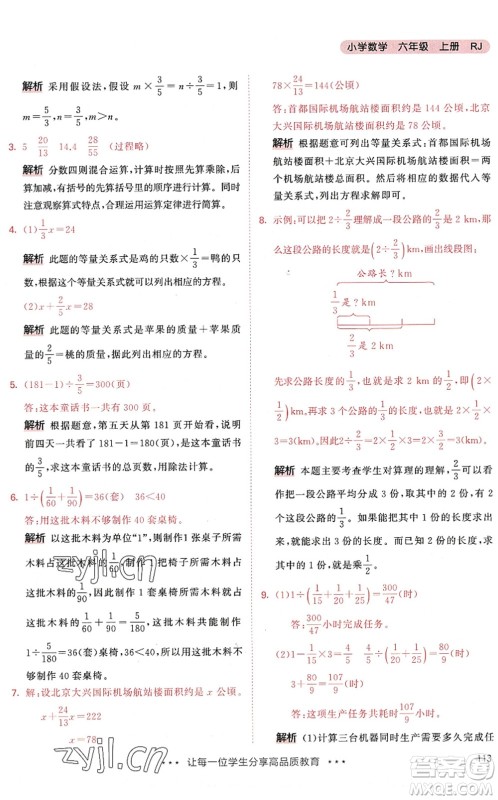 小学数学 六年级 上册 RJ
解析 采用假设法，假设 m×3/5=n÷3/5=1，则
m=5/3，n=3/5，所以 m>n。
3. 5 20/13 14.4 28/55 (过程略)
解析 分数四则混合运算，计算时按照先算乘除，后算加减，有括号的先算括号里面的。同时注意观察算式特点，合理运用运算定律进行计算。
4. (1)1/3x=24
解析 此题的等量关系式是鸡的只数×1/3=鸭的只数，根据这个关系式就可以列出相应的方程。
(2)x+2/5x=28
解析 此题的等量关系式是苹果的质量+苹果的质量×2/5=桃的质量，根据这个关系式就可以列出相应的方程。
5. (181-1)÷3/5=300(页)
答：这本童话书一共有 300 页。
解析 根据题意，第五天从第 181 页开始看，说明前四天一共看了 181-1=180(页)，是这本童话书的3/5，用除法求出这本童话书的总页数。
6. 1÷(1/60+1/90)=36(套) 36<40
答：用这批木料不够制作 40 套桌椅。
解析 以这批木料为单位“1”，则制作 1 张桌子所需木料占这批木料的1/60，制作 1 把椅子所需木料占这批木料的1/90，因此制作 1 套桌椅所需木料占这批木料的
1/60+1/90=5/180，因此用这批木料可以制作
1÷5/180=36(套)桌椅，不够制作 40 套桌椅。
7. 解：设北京大兴国际机场航站楼面积约是 x 公顷。
x+24/13x=222
x=78
78×24/13=144(公顷)
答：首都国际机场航站楼面积约是 144 公顷，北京大兴国际机场航站楼面积约是 78 公顷。
解析 根据题意可列出等量关系式：首都国际机场航站楼面积+北京大兴国际机场航站楼面积=两个机场航站楼总面积。然后将相应的数据代入等量关系式，就可以列出相应的方程。
8. 示例：可以把 2÷2/3理解成一段公路的2/3是 2 km，那么这段公路的长度就是(2÷2/3)km，画出线段图：
公路长? km
1/3是? km
2/3是 2 km
先求公路长度的1/3是多少，也就是求 2 km 的1/2是多少，即 2×1/2；再求 3 个1/3是多少，即 2×1/2×3=3(km)。因此，公路的长度是 2÷2/3=2×1/2×3=2×3/2=3(km)。
解析 本题主要考查学生对算理的理解，2/3可以理解为把一段公路平均分成 3 份，取其中的 2 份，有 2 km。可以先求出其中的 1 份，也就是这段公路的1/3。然后求 3 份有多长，也就是这段公路的全长。
9. (1)1÷(1/15+1/20+1/25)=300/47(时)
答：300/47小时完成任务。
(2)1÷(1/15-1/20)
=1÷3/180
=60(时)
答：单独运行需要 60 小时完成任务。
解析 (1)计算三台机器同时生产需要多久完成任
让每一位学生分享高品质教育
113
zyjl.cn
zyjl.cn